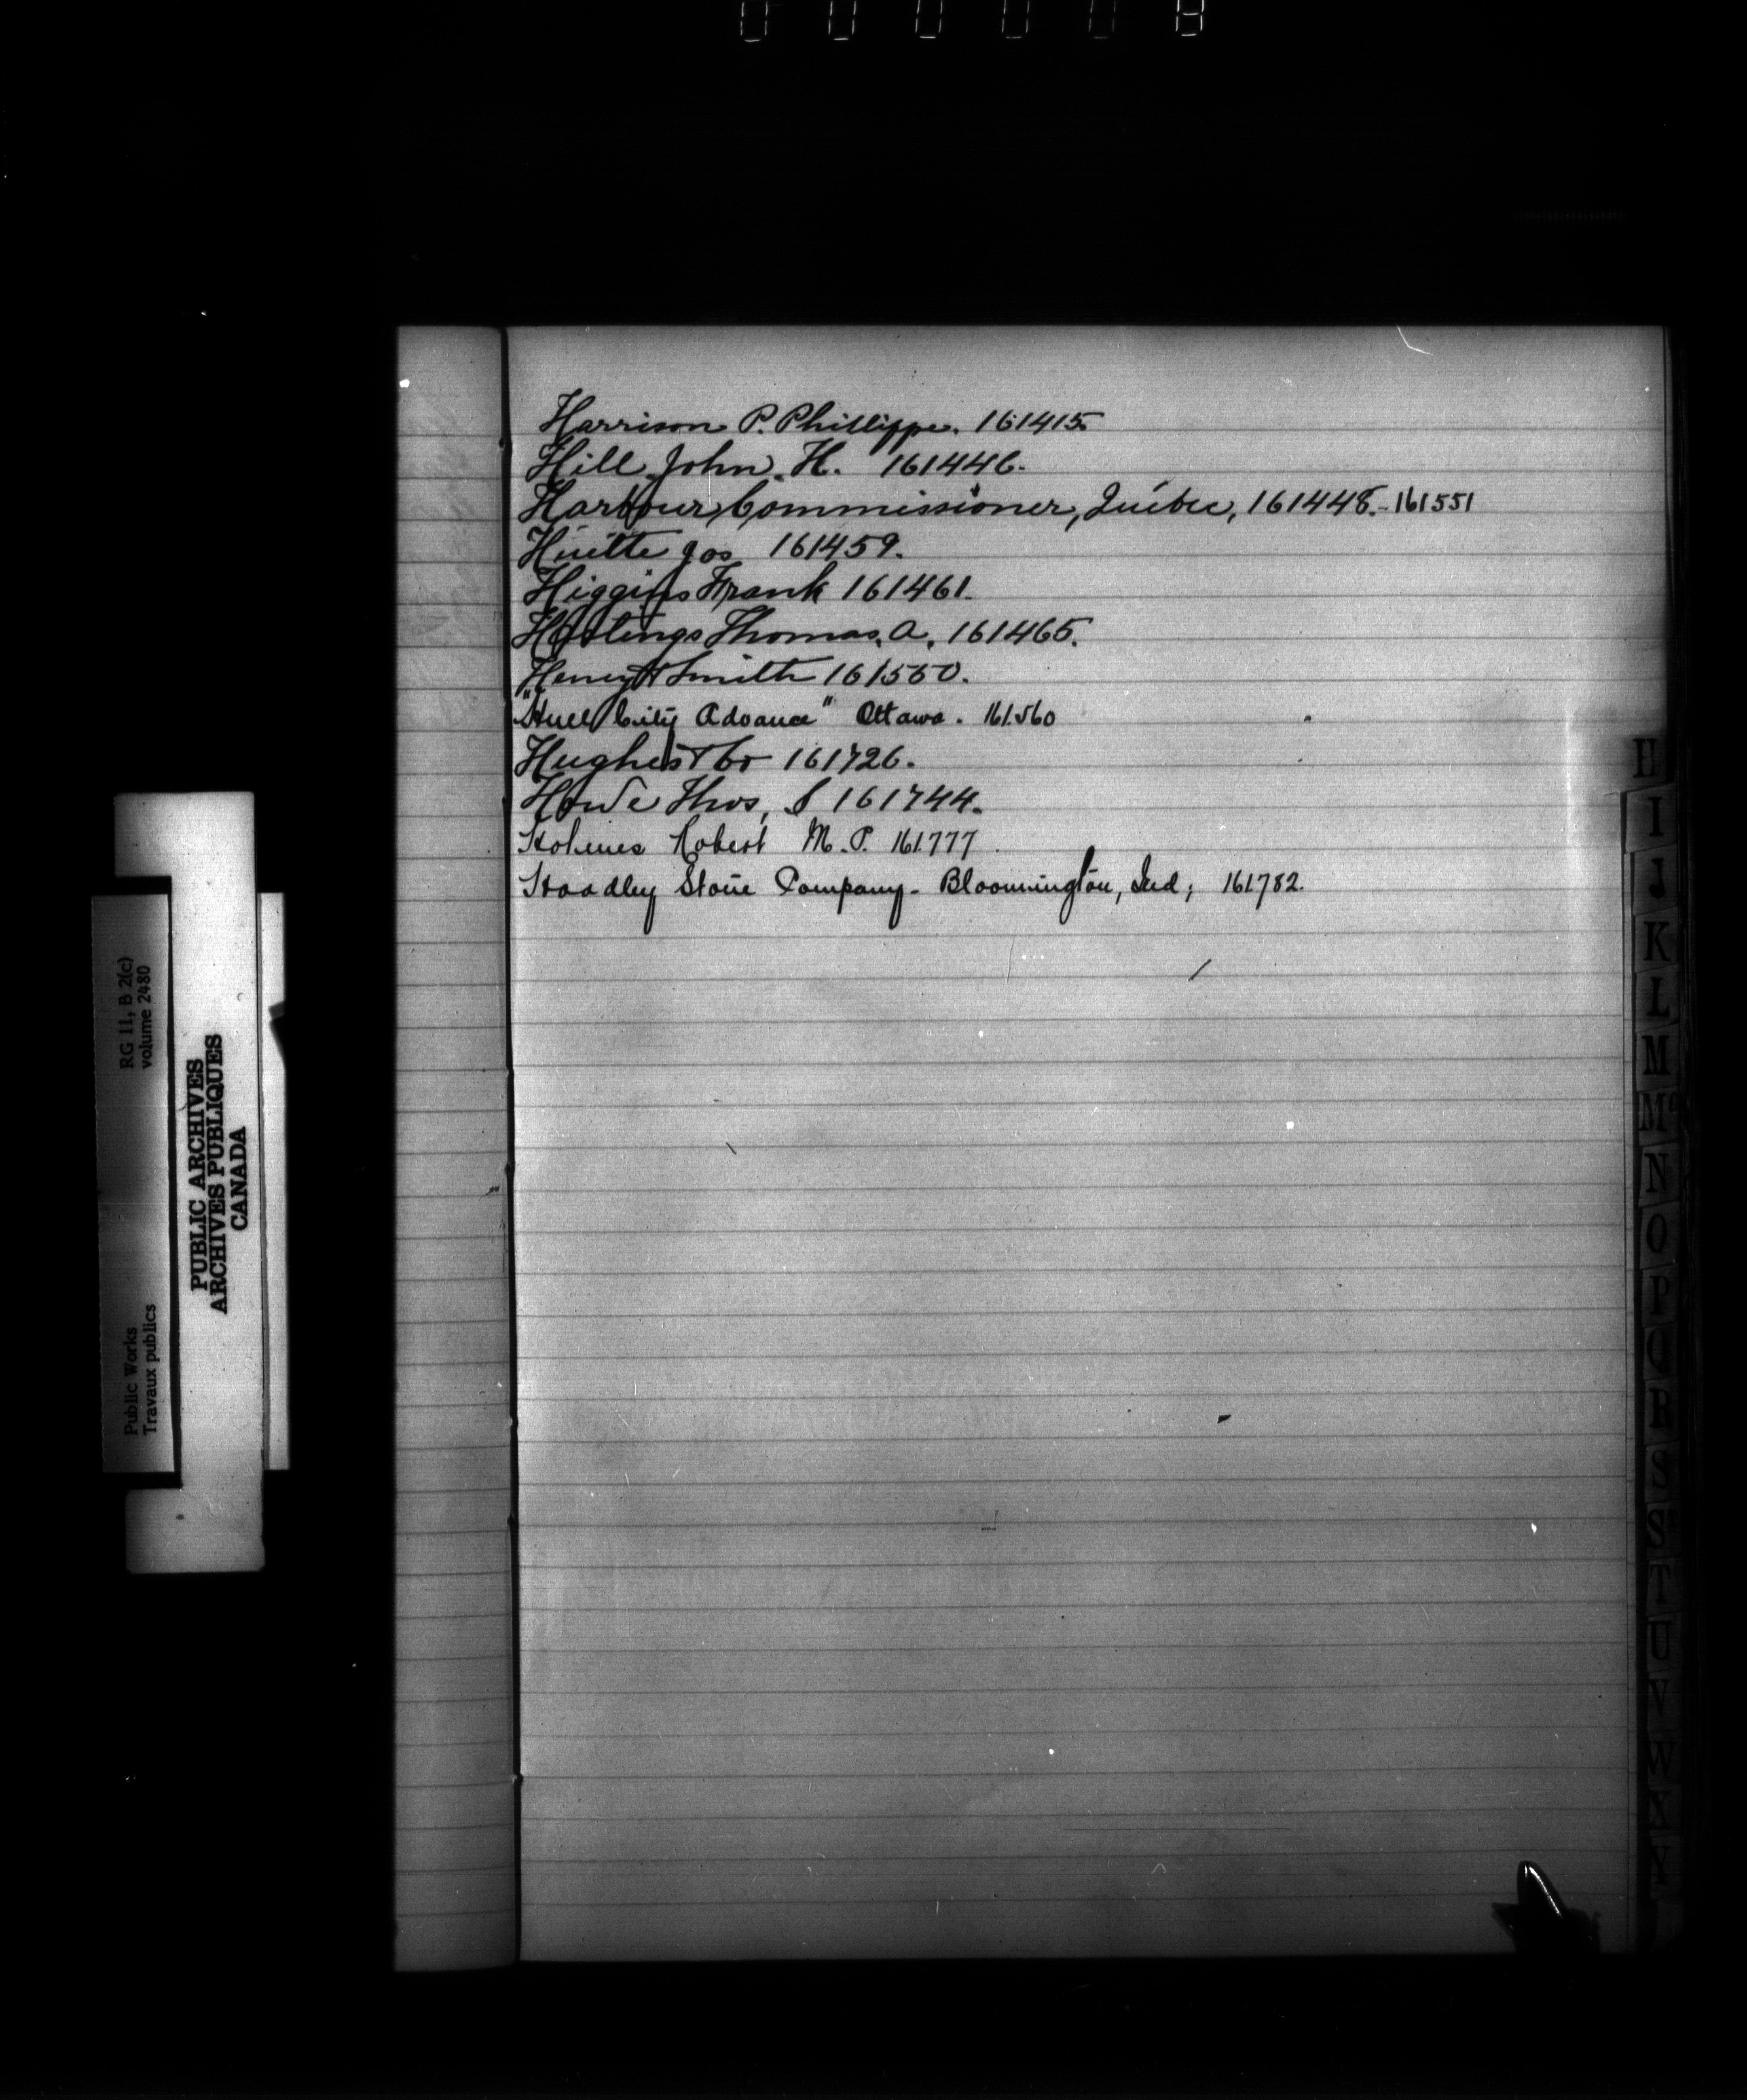 Harrison P. Phillippe. 161415.
Hill John. H. 161446.
Harbour Commissioner, Québec, 161448.-161551
Huitte Jos 161459.
Higgins Frank 161461.
Hastings Thomas. A. 161465.
Henry & Smith 161550.
"Hull City Advance" Ottawa. 161.560
Hughes & Co 161726.
Howe Thos, S 161744.
Holmes Robert M.P. 161.777
Hoadley Stone Company - Bloomington, Ind; 161.782.
H
I
J
K
L
M
Mc
N
O
P
Q
R
S
T
U
V
W
X
Y
RG 11, B 2(c)
volume 2480
PUBLIC ARCHIVES
ARCHIVES PUBLIQUES
CANADA
Public Works
Travaux publics